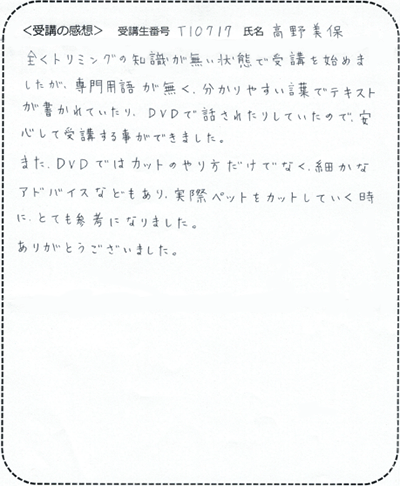 <受講の感想> 受講生番号 T10717 氏名 高野美保
全くトリミングの知識が無い状態で受講を始めま
したが、専門用語が無く、分かりやすい言葉でテキスト
が書かれていたり、DVDで話されたりしていたので、安
心して受講する事ができました。
また、DVDではカットのやり方だけでなく、細かな
アドバイスなどもあり、実際ペットをカットしていく時
に、とても参考になりました。
ありがとうございました。